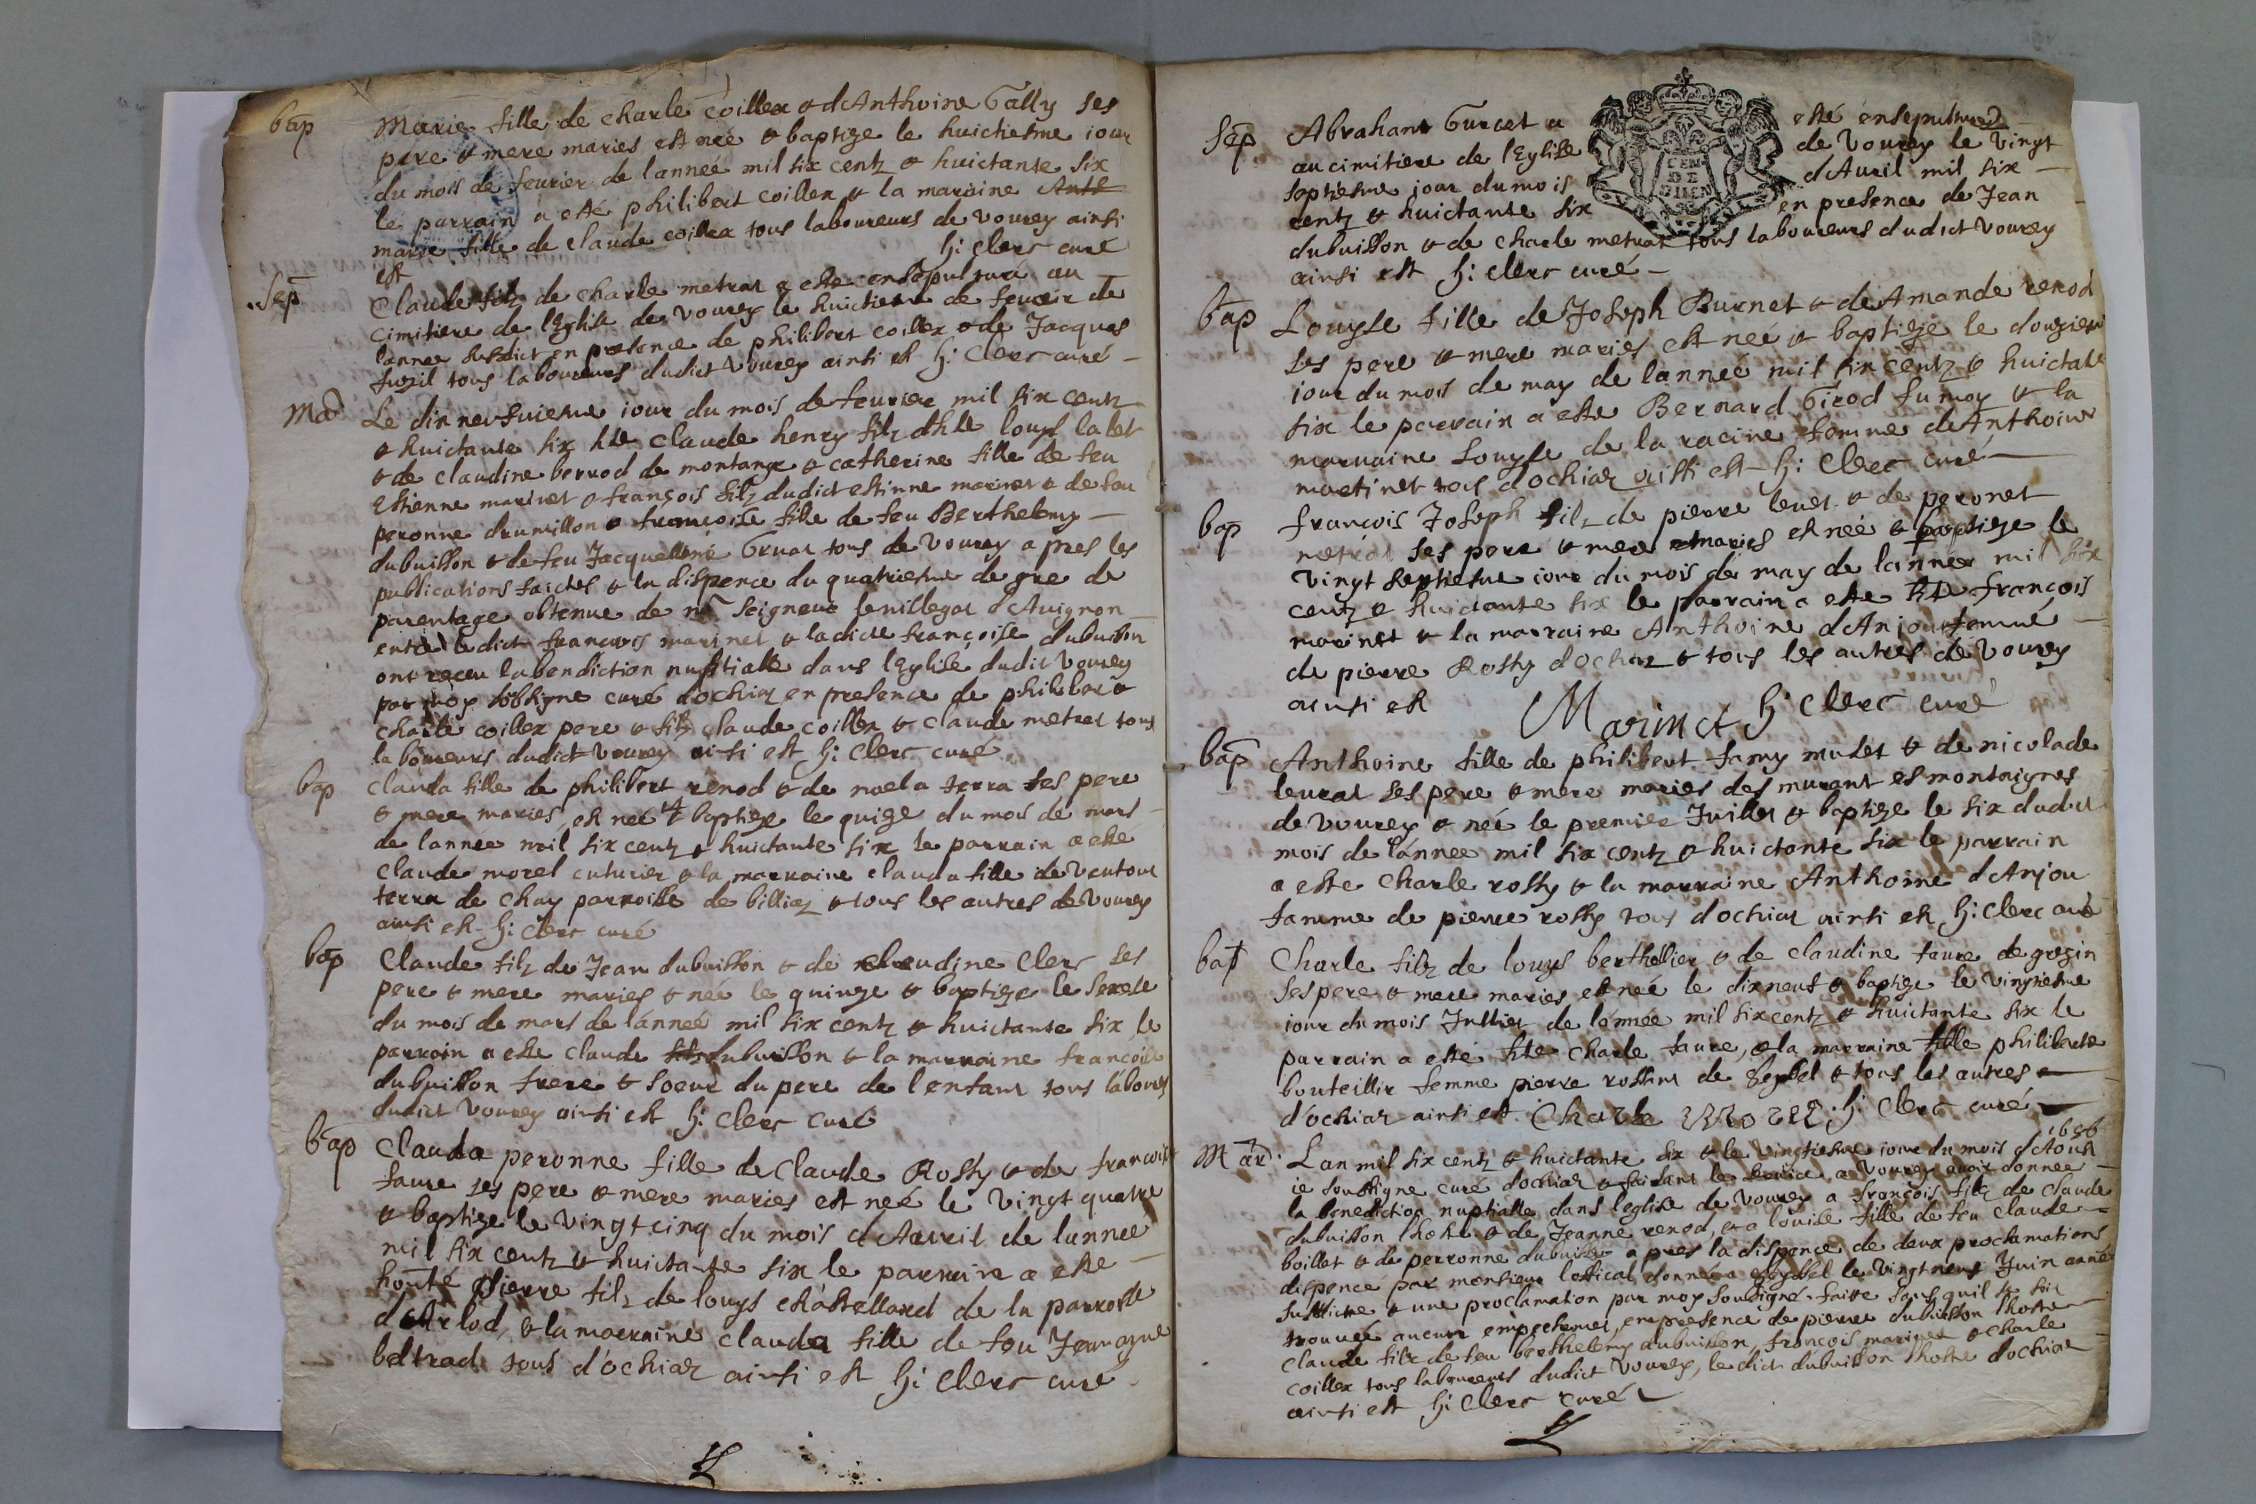 bap Marie fille de charle coillex & dAnthoine Gally ses
pere & mere mariés est neé & baptize le huictiesme iour
du mois de feurier de lanneé mil six centz & huictante six
le parrain a esté philibert coillex & la maraine
marie fille de claude coillex tous laboureurs de vourey ainsi
est hi clerc curé
sep Claude filz de charle metrat a este ensepulturé au
cimitiere de lEglise de Vourey le huictiesme de feurier de
lannee susdict en presence de philibert coillex & de Jacques
tous laboureurs dudict Vourey ainsi est hi Clerc curé
Mar Le dix neufuiesme iour du mois de feurier mil six centz
& huictante six hle claude henry filz dhle louys lalet
& de claudine berrod de montange & catherine fille de feu
estienne marinet & françois filz dudict estinne marinet & de feu
peronne drumillon & francoise fille de feu Berthelemy
dubuisson & de feu Jacquelline Gruat tous de Vourey apres les
publications faictes & la dispence du quatriesme degre de
parentage obtenue de Seigneur le uillegat dAuignon
entre ledict francoys marinet & ladicte françoise dubuison
ont receu la bendiction nuptialle dans lEglise dudit Vourey
par moy sobsigne curé dochiaz en presence de philibert &
charle coillex pere & filz claude coillex & claude metrat tous
laboureurs dudict Vourey ainsi est hi Clerc curé
bap Clauda fille de philibert renod & de noela terra ses pere
& mere mariés est neé & baptize le quize du mois de mars
de lanneé mil six centz & huictante six le parrain a esté
Claude morel cuturier & la marraine clauda fille de Ventour
terra de chay parroisse de billiaz & tous les autres de Vourey
ainsi est hi clerc curé
bap Claude filz de Jean dubuisson & de claudine Clerc ses
pere & mere mariés & neé le quinze & baptize le Sexese
du mois de mars de lánneé mil six centz & huictante six, le
parrain a este Claude dubuisson & la marraine francoise
dubuisson frere & soeur du pere de lenfant tous laboureurs
dudict Vourey ainsi est hi Clerc curé
bap Clauda peronne fille de Claude Rossy & de francoise
faure ses pere & mere mariés est neé le Vingt quatre
& baptize le Vingtcinq du mois dAuril de lannee
mil six centz & huictante six le parrain a este
honté Pierre filz de louys chastellard de la parroisse
dArlod, & la marraine clauda fille de feu
beltrad tous d'ochiaz ainsi est hi Clerc curé
Sep Abrahant Gurcet a esté ensepulturé
au cimitiere de lEglise de Vourey le Vingt
septiesme iour du mois dAuril mil six
centz & huictante six en presence de Jean
dubuisson & de charle metrat tous laboureurs dudict Vourey
ainsi est hi clerc curé
bap Louyse fille de Joseph Burnet & de Amande renod
ses pere & mere mariés est neé & baptize le douziesme
iour du mois de may de lanneé mil six centz & huictante
six le parrain a esté Bernard Girod & la
marraine Louyse de la racine femme de Anthoine
martinet tous dochiaz ainsi est hi Clerc curé
bap françois Joseph filz de pierre leuet & de peronet
metrat ses pere & mere mariés est neé & baptize le
Vingt septiesme iour du mois de may de lannee mil six
centz & huictante six le parrain a este hle françois
marinet & la marraine Anthoine dAniou femme
de pierre Rossy dochiaz & tous les autres de Vourey
ainsi est Marinet hi Clerc curé
bap Anthoine fille de philibert famy mulet & de nicolade
leurat ses pere & mere mariés des murant es montaignes
de Vourey & neé le premier Juillet & baptize le six dudict
mois de lánnee mil six centz & huictante six le parrain
a este Charle rossy & la marraine Anthoine dAnjou
famme de pierre rossy tous dochiaz ainsi est hi Clerc curé
bap Charle filz de louys berthellier & de claudine faure de grezin
ses pere & mere mariés est neé le dixneuf & baptize le vingtiesme
iour du mois Jullet de lánnee mil six centz & huictante six le
parrain a esté hle Charle faure, & la marraine hlle philiberte
bouteillir femme pierre rossins de Seyssel & tous les autres
d'ochiaz ainsi est Charle hi Clerc curé
1686
Mar. Lan mil six centz & huictante six & le Vingtiesme iour du mois dAoust
ie soubsigne curé dochiaz & faisant le seruice a Vourey auoir donneé
la benediction nuptialle dans leglise de Vourey a françois filz de Claude
dubuisson lhoste & de Jeanne renod, & a louise fille de feu Claude
boillet & de perronne dubuisson apres la dispence de deux proclamations
dispencé par monsieur lofficial donné a Seyssel le Vingtneuf Juin annee
susdicte & une proclamation par moy soubsigné faitte sans quil se soit
trouueé aucun empechemet, en presence de pierre dubuisson lhoste
Claude filz de feu berthelemy dubuisson, françois marinet & Charle
coillex tous laboureurs dudict Vourey, le dict dubuisson lhoste dochiaz
ainsi est hi Clerc curé